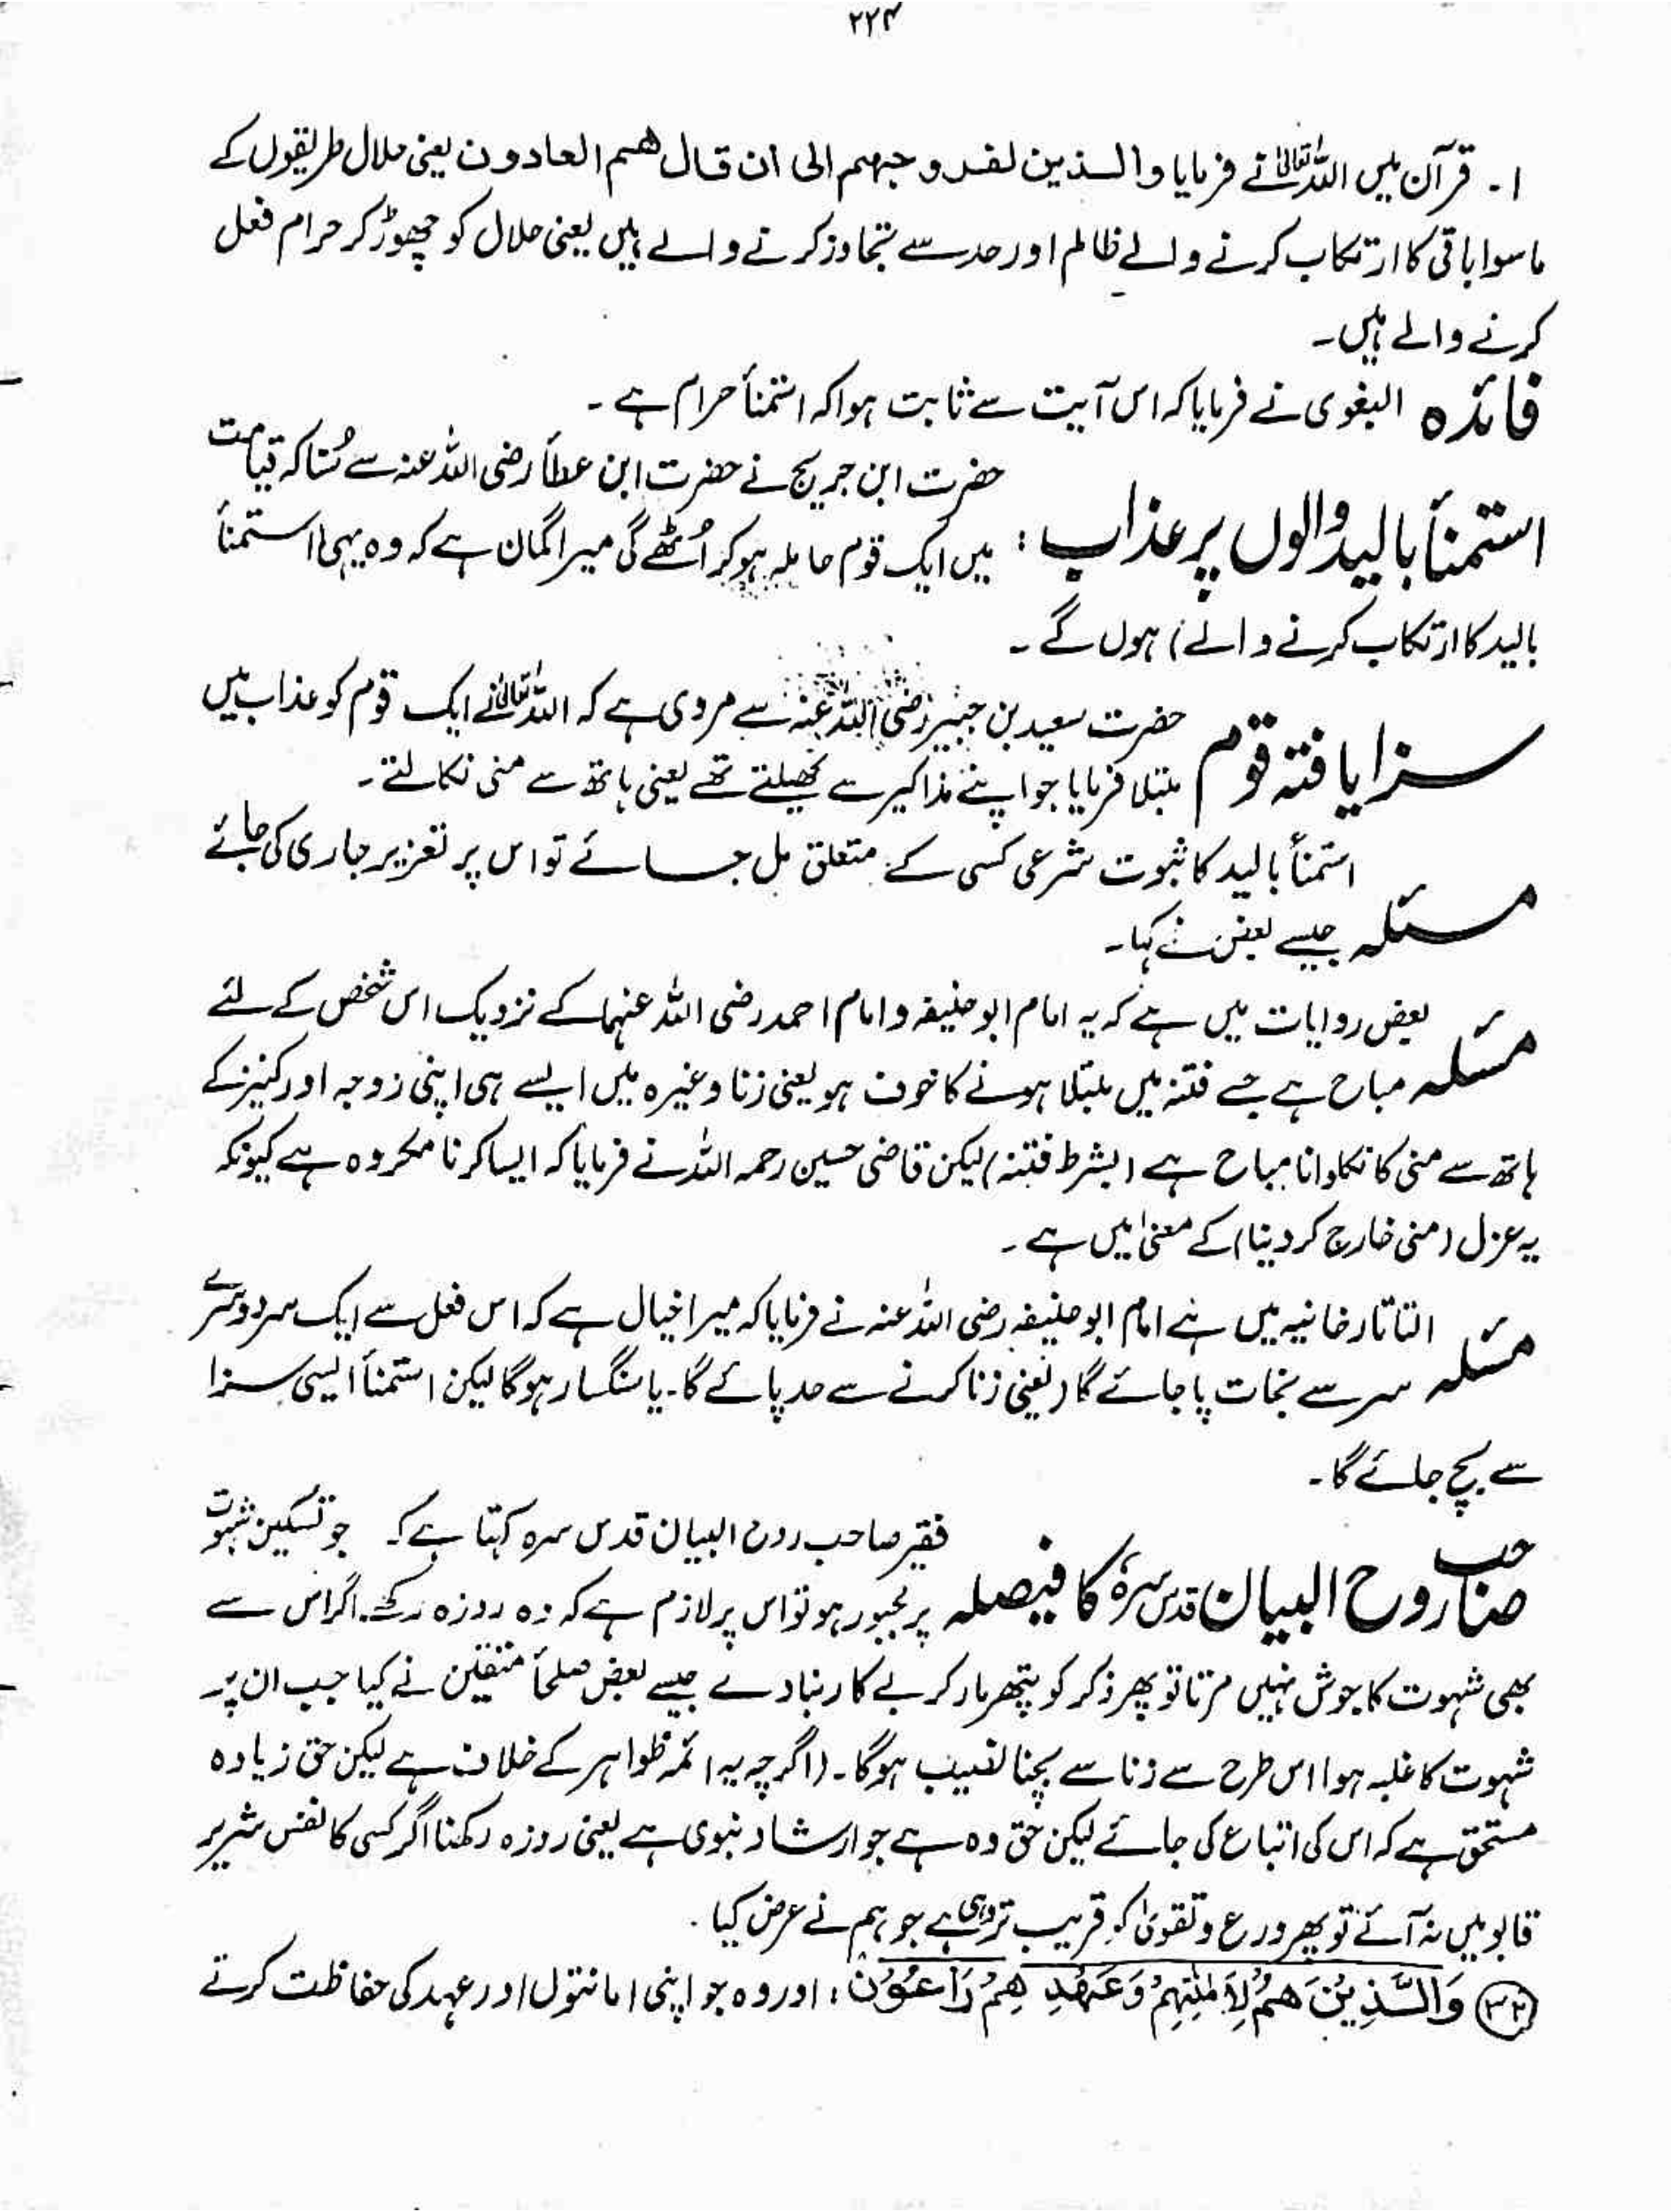 ۲۲۴
۱۔ قرآن میں اللہ تعالیٰ نے فرمایا والذین لفروجہم الی ان قال ھم العادون یعنی حلال طریقوں کے
ماسوا باقی کا ارتکاب کرنے والے ظالم اور حد سے تجاوز کرنے والے ہیں یعنی حلال کو چھوڑ کر حرام فعل
کرنے والے ہیں۔
فائدہ البغوی نے فرمایا کہ اس آیت سے ثابت ہوا کہ استمنأ حرام ہے۔
حضرت ابن جریج نے حضرت ابن عطأ رضی اللہ عنہ سے سُنا کہ قیامت
استمنأ بالید والوں پر عذاب : میں ایک قوم حاملہ ہو کر اُٹھے گی میرا گمان ہے کہ وہ یہی (استمنأ
بالید کا ارتکاب کرنے والے) ہوں گے۔
حضرت سعید بن جبیر رضی اللہ عنہ سے مروی ہے کہ اللہ تعالیٰ نے ایک قوم کو عذاب میں
سزا یافتہ قوم مبتلا فرمایا جو اپنے مذاکیر سے کھیلتے تھے یعنی ہاتھ سے منی نکالتے۔
استمنأ بالید کا ثبوت شرعی کسی کے متعلق مل جائے تو اس پر تعزیر جاری کی جائے
مسئلہ جیسے بعض نے کہا۔
بعض روایات میں ہے کہ یہ امام ابو حنیفہ و امام احمد رضی اللہ عنہما کے نزدیک اس شخص کے لئے
مسئلہ مباح ہے جسے فتنہ میں مبتلا ہونے کا خوف ہو یعنی زنا وغیرہ میں ایسے ہی اپنی زوجہ اور کنیز کے
ہاتھ سے منی کا نکلوانا مباح ہے (بشرط فتنہ) لیکن قاضی حسین رحمہ اللہ نے فرمایا کہ ایسا کرنا مکروہ ہے کیونکہ
یہ عزل (منی خارج کر دینا) کے معنیٰ میں ہے۔
التاتارخانیہ میں ہے امام ابو حنیفہ رضی اللہ عنہ نے فرمایا کہ میرا خیال ہے کہ اس فعل سے ایک سر دوسرے
مسئلہ سر سے نجات پا جائے گا (یعنی زنا کرنے سے حد پائے گا۔ یا سنگسار ہوگا لیکن استمنأ ایسی سزا
سے بچ جائے گا۔
فقیر صاحب روح البیان قدس سرہ کہتا ہے کہ جو تسکین شہوت
صاحب روح البیان قدس سرہٗ کا فیصلہ پر مجبور ہو تو اس پر لازم ہے کہ وہ روزہ رکھے۔ اگر اس سے
بھی شہوت کا جوش نہیں مرتا تو پھر ذکر کو پتھر مار کر بے کار بنا دے جیسے بعض صلحأ متقین نے کیا جب ان پر
شہوت کا غلبہ ہوا اس طرح سے زنا سے بچنا نصیب ہوگا۔ (اگرچہ یہ ائمہ ظواہر کے خلاف ہے لیکن حق زیادہ
مستحق ہے کہ اس کی اتباع کی جائے لیکن حق وہ ہے جو ارشاد نبوی ہے یعنی روزہ رکھنا اگر کسی کا نفس شریر
قابو میں نہ آئے تو پھر ورع و تقویٰ کو قریب تر وہی ہے جو ہم نے عرض کیا۔
۳۲ وَالَّذِیْنَ ھُمْ لِاَمٰنٰتِہِمْ وَعَہْدِ ھِمْ رَاعُوْنَ، اور وہ جو اپنی امانتوں اور عہد کی حفاظت کرتے